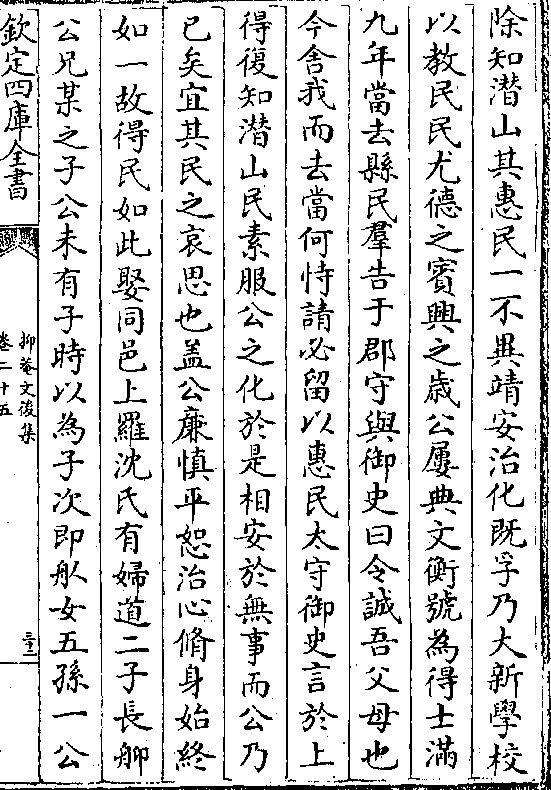 除知潛山其惠民一不異靖安治化既孚乃大新學校
以教民民尤德之賓興之歳公屢典文衡號為得士滿
九年當去縣民羣告于郡守與御史曰令誠吾父母也
今舍我而去當何恃請必留以惠民太守御史言於上
得復知潛山民素服公之化於是相安於無事而公乃
已矣宜其民之哀思也盖公廉慎平恕治心脩身始終
如一故得民如此娶同邑上羅沈氏有婦道二子長舯
公兄某之子公未有子時以為子次即舤女五孫一公
欽定四庫全書
抑菴文後集
卷二十五
三十二